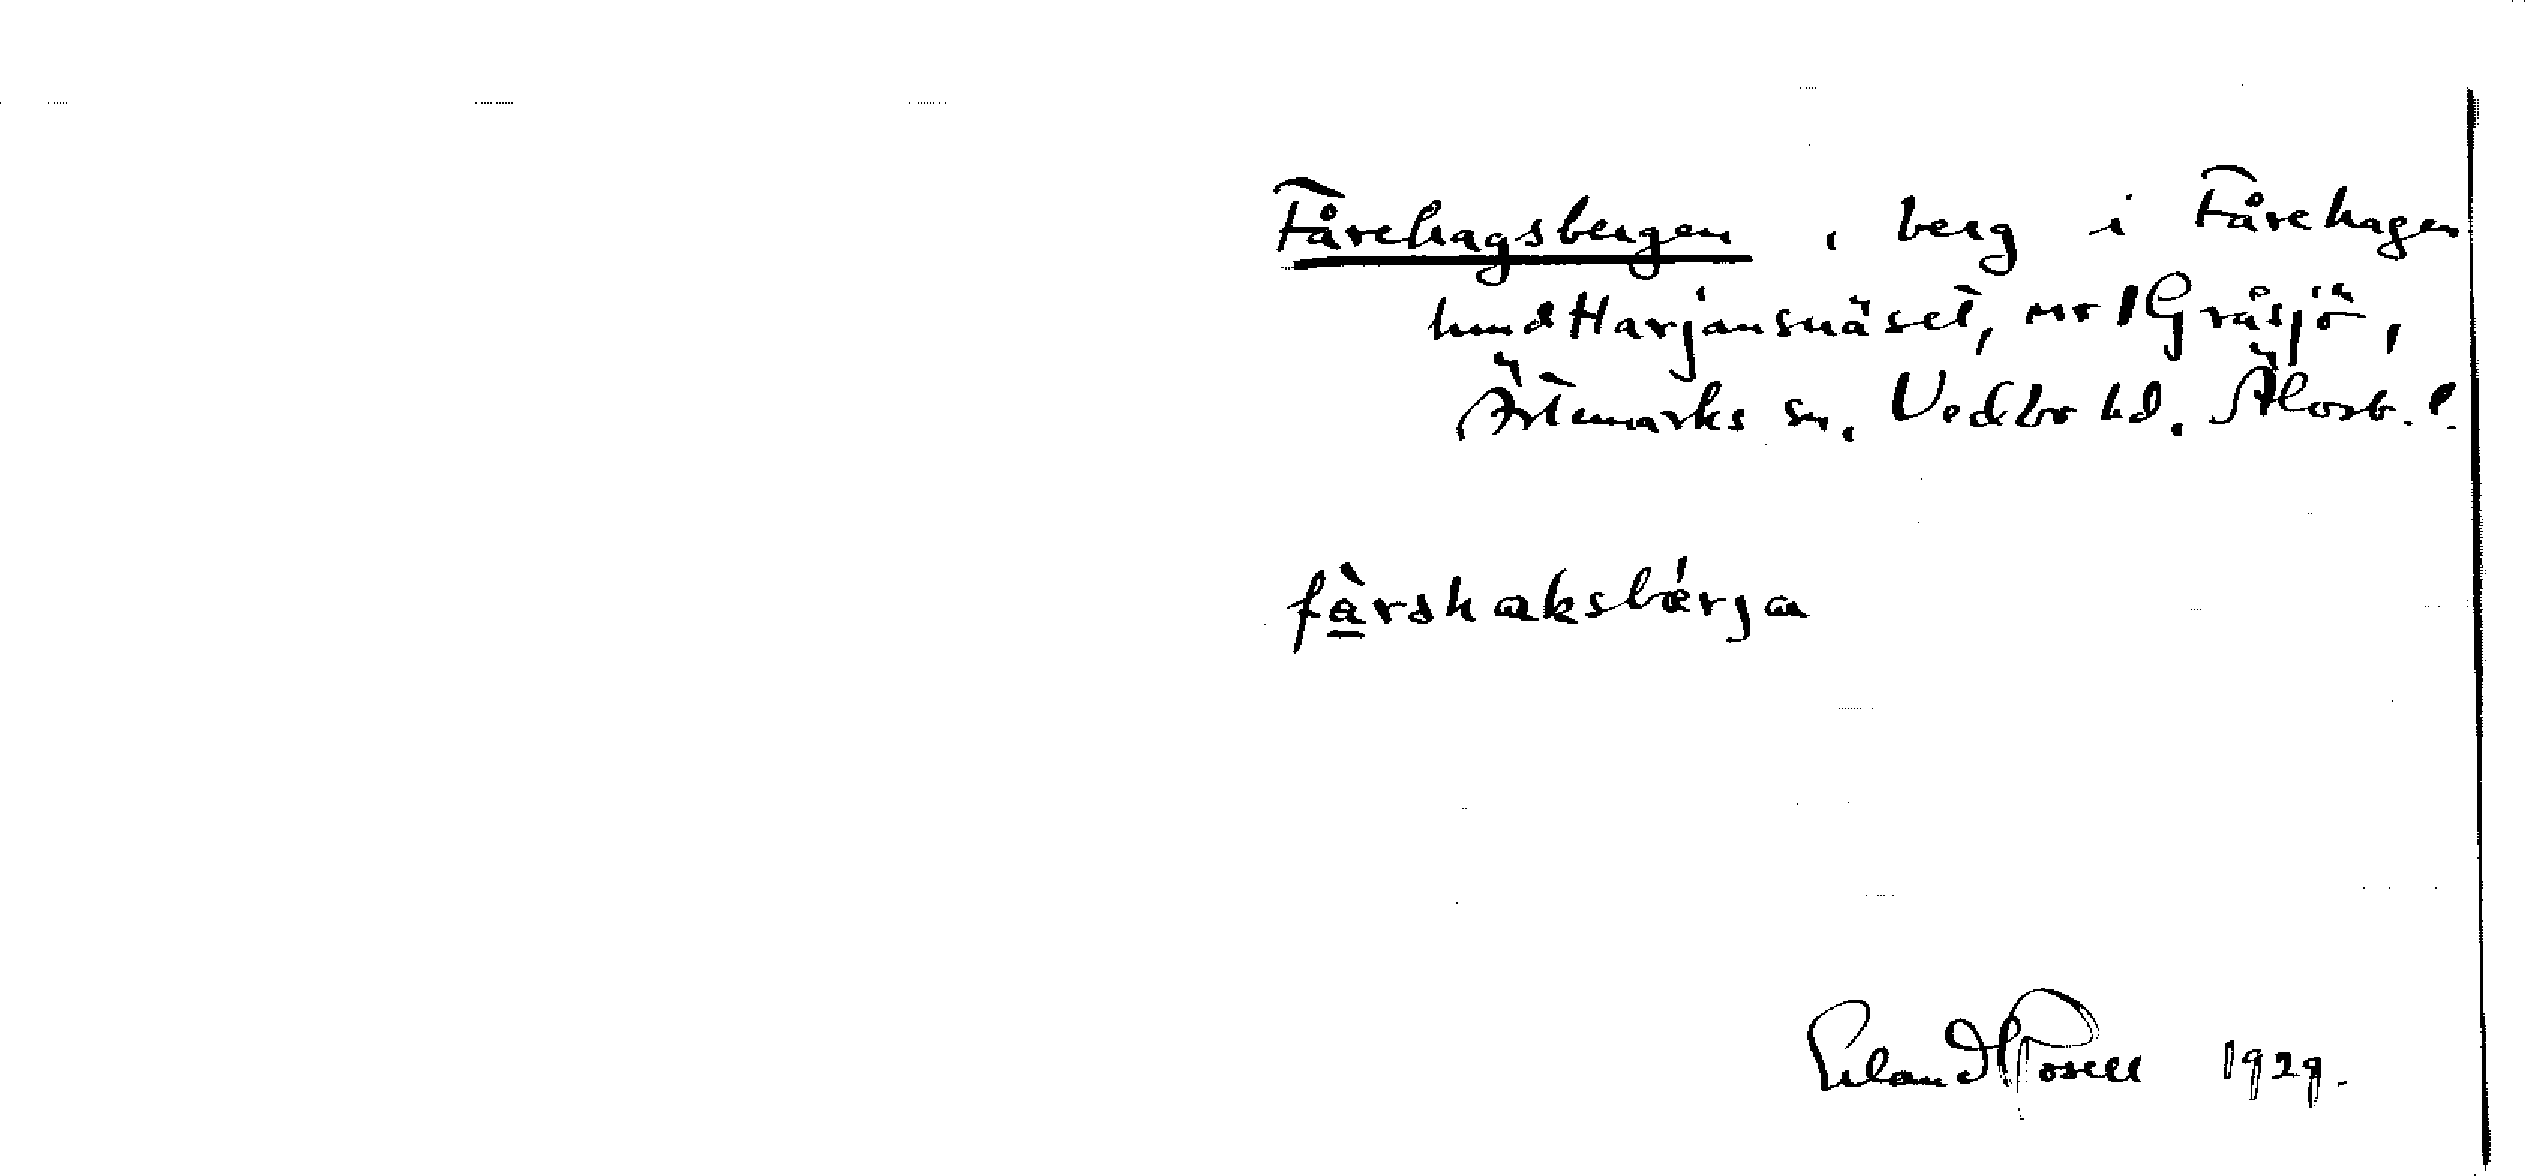 Fårehagsbergen, berg i Fårehagen
hmd Harjansnäset, nr 1 Gråsjö,
Ärtemarks sn. Vedbo hd. Älvsb. l.
fàrshaksbǽrja
Erland Rosell 1929.